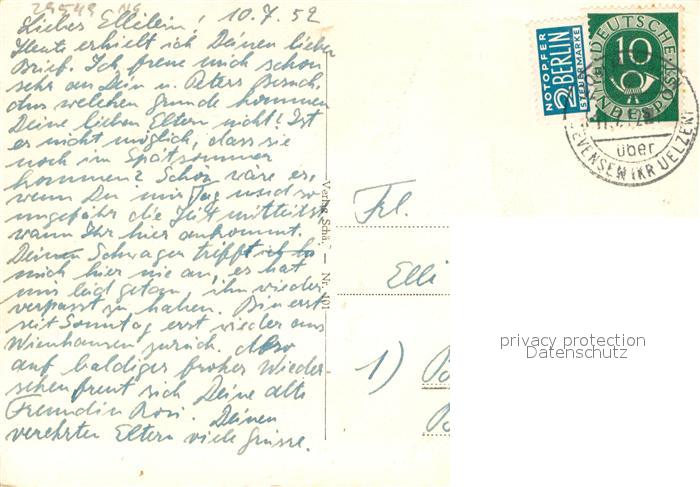 29549 NG
Liebes Ellilein! 10.7.52
Heute erhielt ich Deinen lieben
Brief. Ich freue mich schon
sehr auf Dein u. Peters Besuch,
aus welchen Grunde kommen
Deine lieben Eltern nicht? Ist
es nicht möglich, dass sie
noch im Spätsommer
kommen? Schön wäre es,
wenn Du mir Tag und so
ungefähr die Zeit mitteilst
wann Ihr hier ankommt.
Deinen Schwager trifft ich
mich hier nie an, es hat
mir leid getan, ihn wieder
verpasst zu haben. Bin erst
seit Sonntag erst wieder aus
Wienhausen zurück. Also
auf baldiger froher Wieder
sehen freut sich Deine alte
Freundin Rosi. Deinen
verehrten Eltern viele Grüsse.
Verlag Schä. — Nr. 101
NOTOPFER
2 BERLIN
STEUERMARKE
DEUTSCHE
10
BUNDESPOST
über
BEVENSEN (KR UELZEN)
Frl.
Elli
1)
privacy protection
Datenschutz